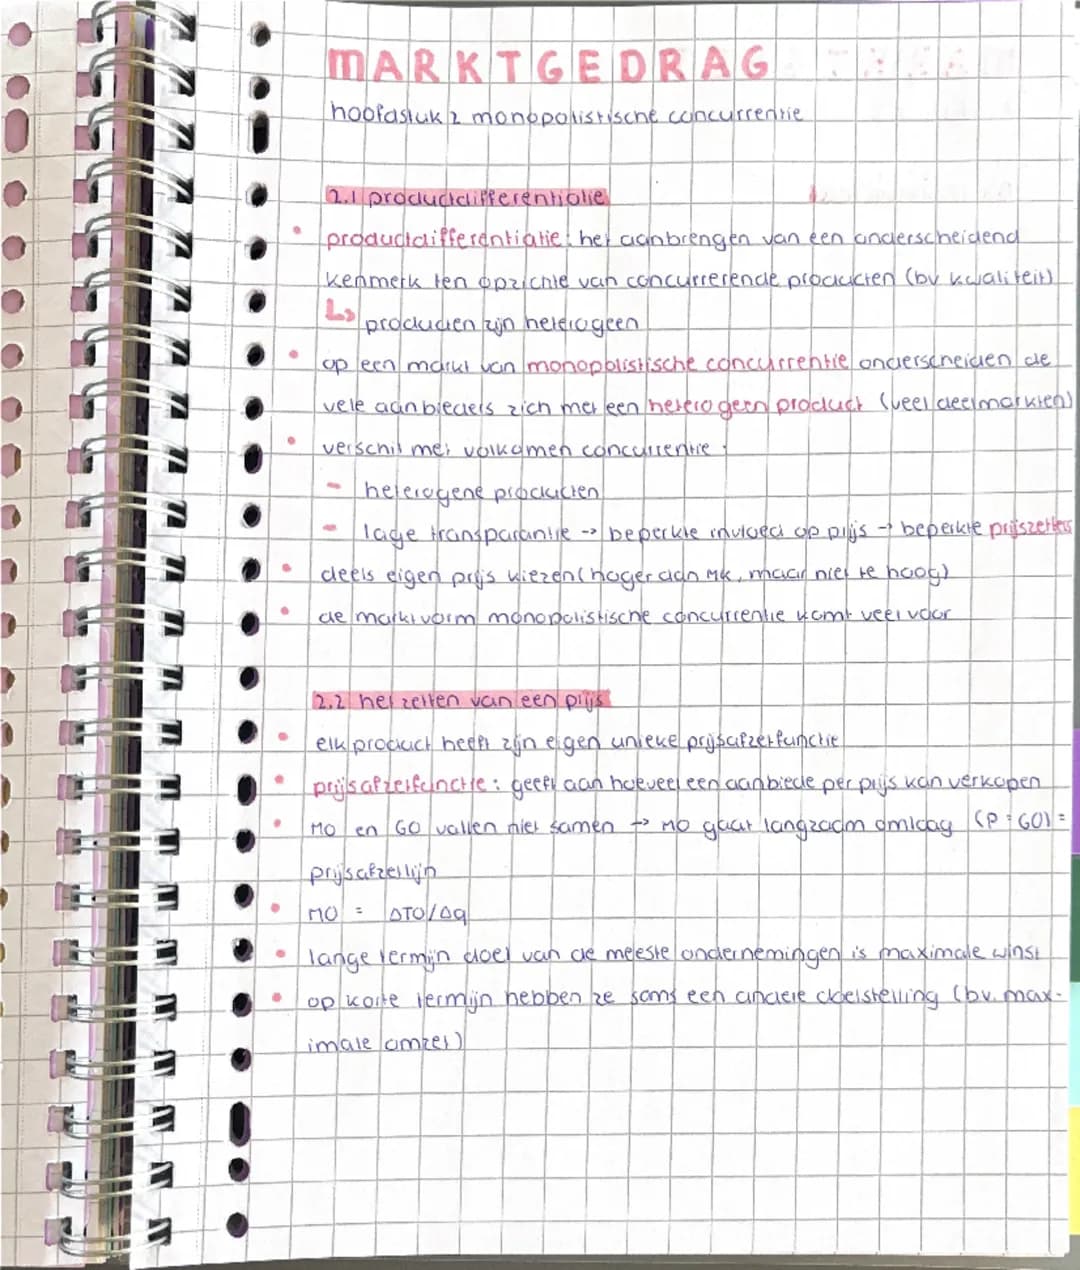 MARKTGEDRAG
hoofdstuk 2 monopolistische concurrentie
2.1 productdifferentiatie
• productdifferentiatie: het aanbrengen van een onderscheidend
kenmerk ten opzichte van concurrerende producten (bv kwaliteit)
↳ producten zijn heterogeen
• op een markt van monopolistische concurrentie onderscheiden de
vele aanbieders zich met een heterogeen product (veel deelmarkten)
• verschil met volkomen concurrentie:
- heterogene producten
- lage transparantie → beperkte invloed op prijs → beperkte prijszetters
• deels eigen prijs kiezen (hoger dan MK, maar niet te hoog)
• de marktvorm monopolistische concurrentie komt veel voor
2.2 het zetten van een prijs
• elk product heeft zijn eigen unieke prijsafzetfunctie
• prijsafzetfunctie: geeft aan hoeveel een aanbiede per prijs kan verkopen
• MO en GO vallen niet samen → MO gaat langzaam omlaag (P = GO) =
prijsafzetlijn
• MO = ΔTO/Δq
• lange termijn doel van de meeste ondernemingen is maximale winst
• op korte termijn hebben ze soms een andere doelstelling (bv. max-
imale omzet)